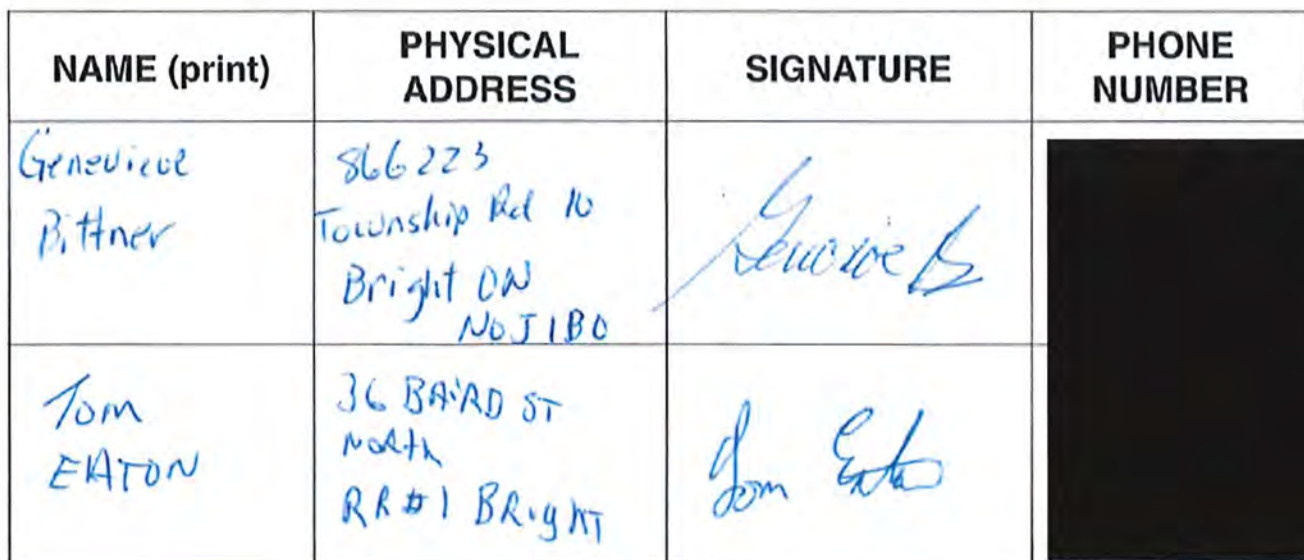 NAME (print)
PHYSICAL
ADDRESS
SIGNATURE
PHONE
NUMBER
Genevieve
Bittner
866223
Township Rd 10
Bright ON
N0J 1B0
Tom
EATON
36 BAIRD ST
North
RR#1 BRigHT
Tom